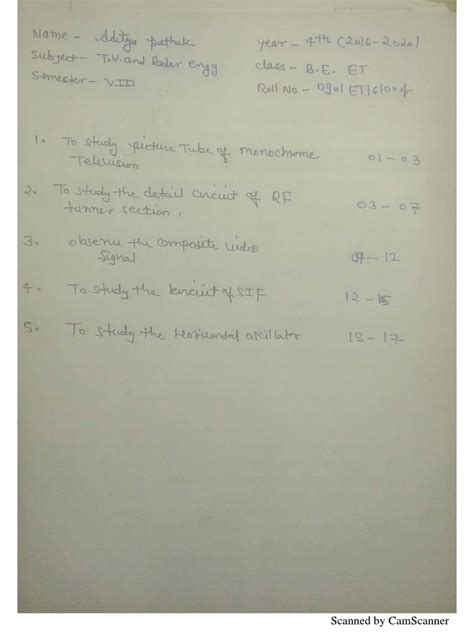 Name - Aditya pathak
year - 4th (2016-2020)
Subject - T.V. and Radar engg.
class - B.E. ET
Semester - VII
Roll No - 0901ET161004
1. To study picture Tube of monochrome Television 01 - 03
2. To study the detail circuit of RF tunner section. 03 - 07
3. observe the composite video Signal 07 - 12
4. To study the circuit of SIF 12 - 15
5. To study the Horizontal oscillator 15 - 17
Scanned by CamScanner